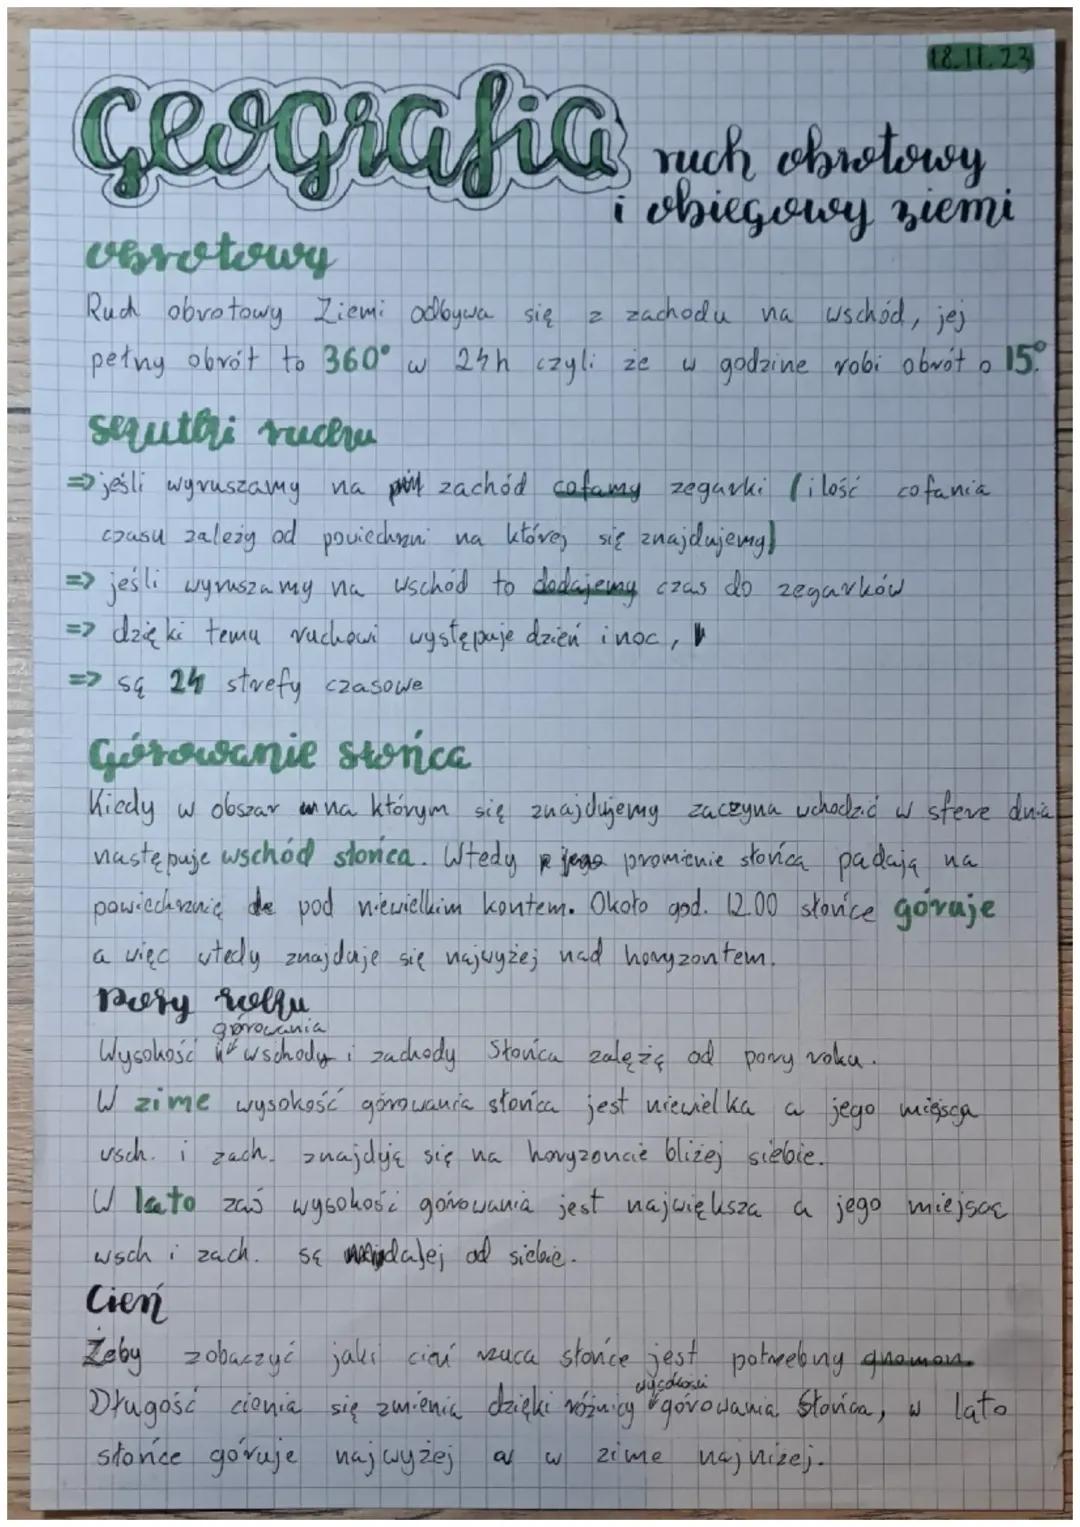 18.11.23
Geografia
ruch obrotowy
i obiegowy ziemi
obrotowy
Ruch obrotowy Ziemi odbywa się z zachodu na wschód, jej
pełny obrót to 360° w 24h czyli że w godzine robi obrót o 15°.
skutki ruchu
=> jeśli wyruszamy na zachód cofamy zegarki (ilość cofania
czasu zależy od powiechzni na której się znajdujemy)
=> jeśli wyruszamy na wschód to dodajemy czas do zegarków
=> dzięki temu ruchowi występuje dzień i noc,
=> są 24 strefy czasowe
Górowanie słońca
Kiedy w obszar na którym się znajdujemy zaczyna wchodzić w sfere dnia
następuje wschód słońca. Wtedy jego promienie słońca padają na
powiechrznię pod niewielkim kontem. Około god. 12.00 słońce góruje
a więc wtedy znajduje się najwyżej nad horyzontem.
Pory roku
górowania
Wysokość wschody i zachody Słońca zależą od pory roku.
W zime wysokość górowania słońca jest niewielka a jego miejsca
wsch. i zach. znajdują się na horyzoncie bliżej siebie.
W lato zaś wysokość górowania jest największa a jego miejsca
wsch i zach. są dalej od siebie.
Cień
Żeby zobaczyć jaki cień rzuca słońce jest potrzebny gnomon.
wysokości
Długość cienia się zmienia dzięki różnicy górowania Słońca, w lato
słońce góruje najwyżej a w zime najniżej.